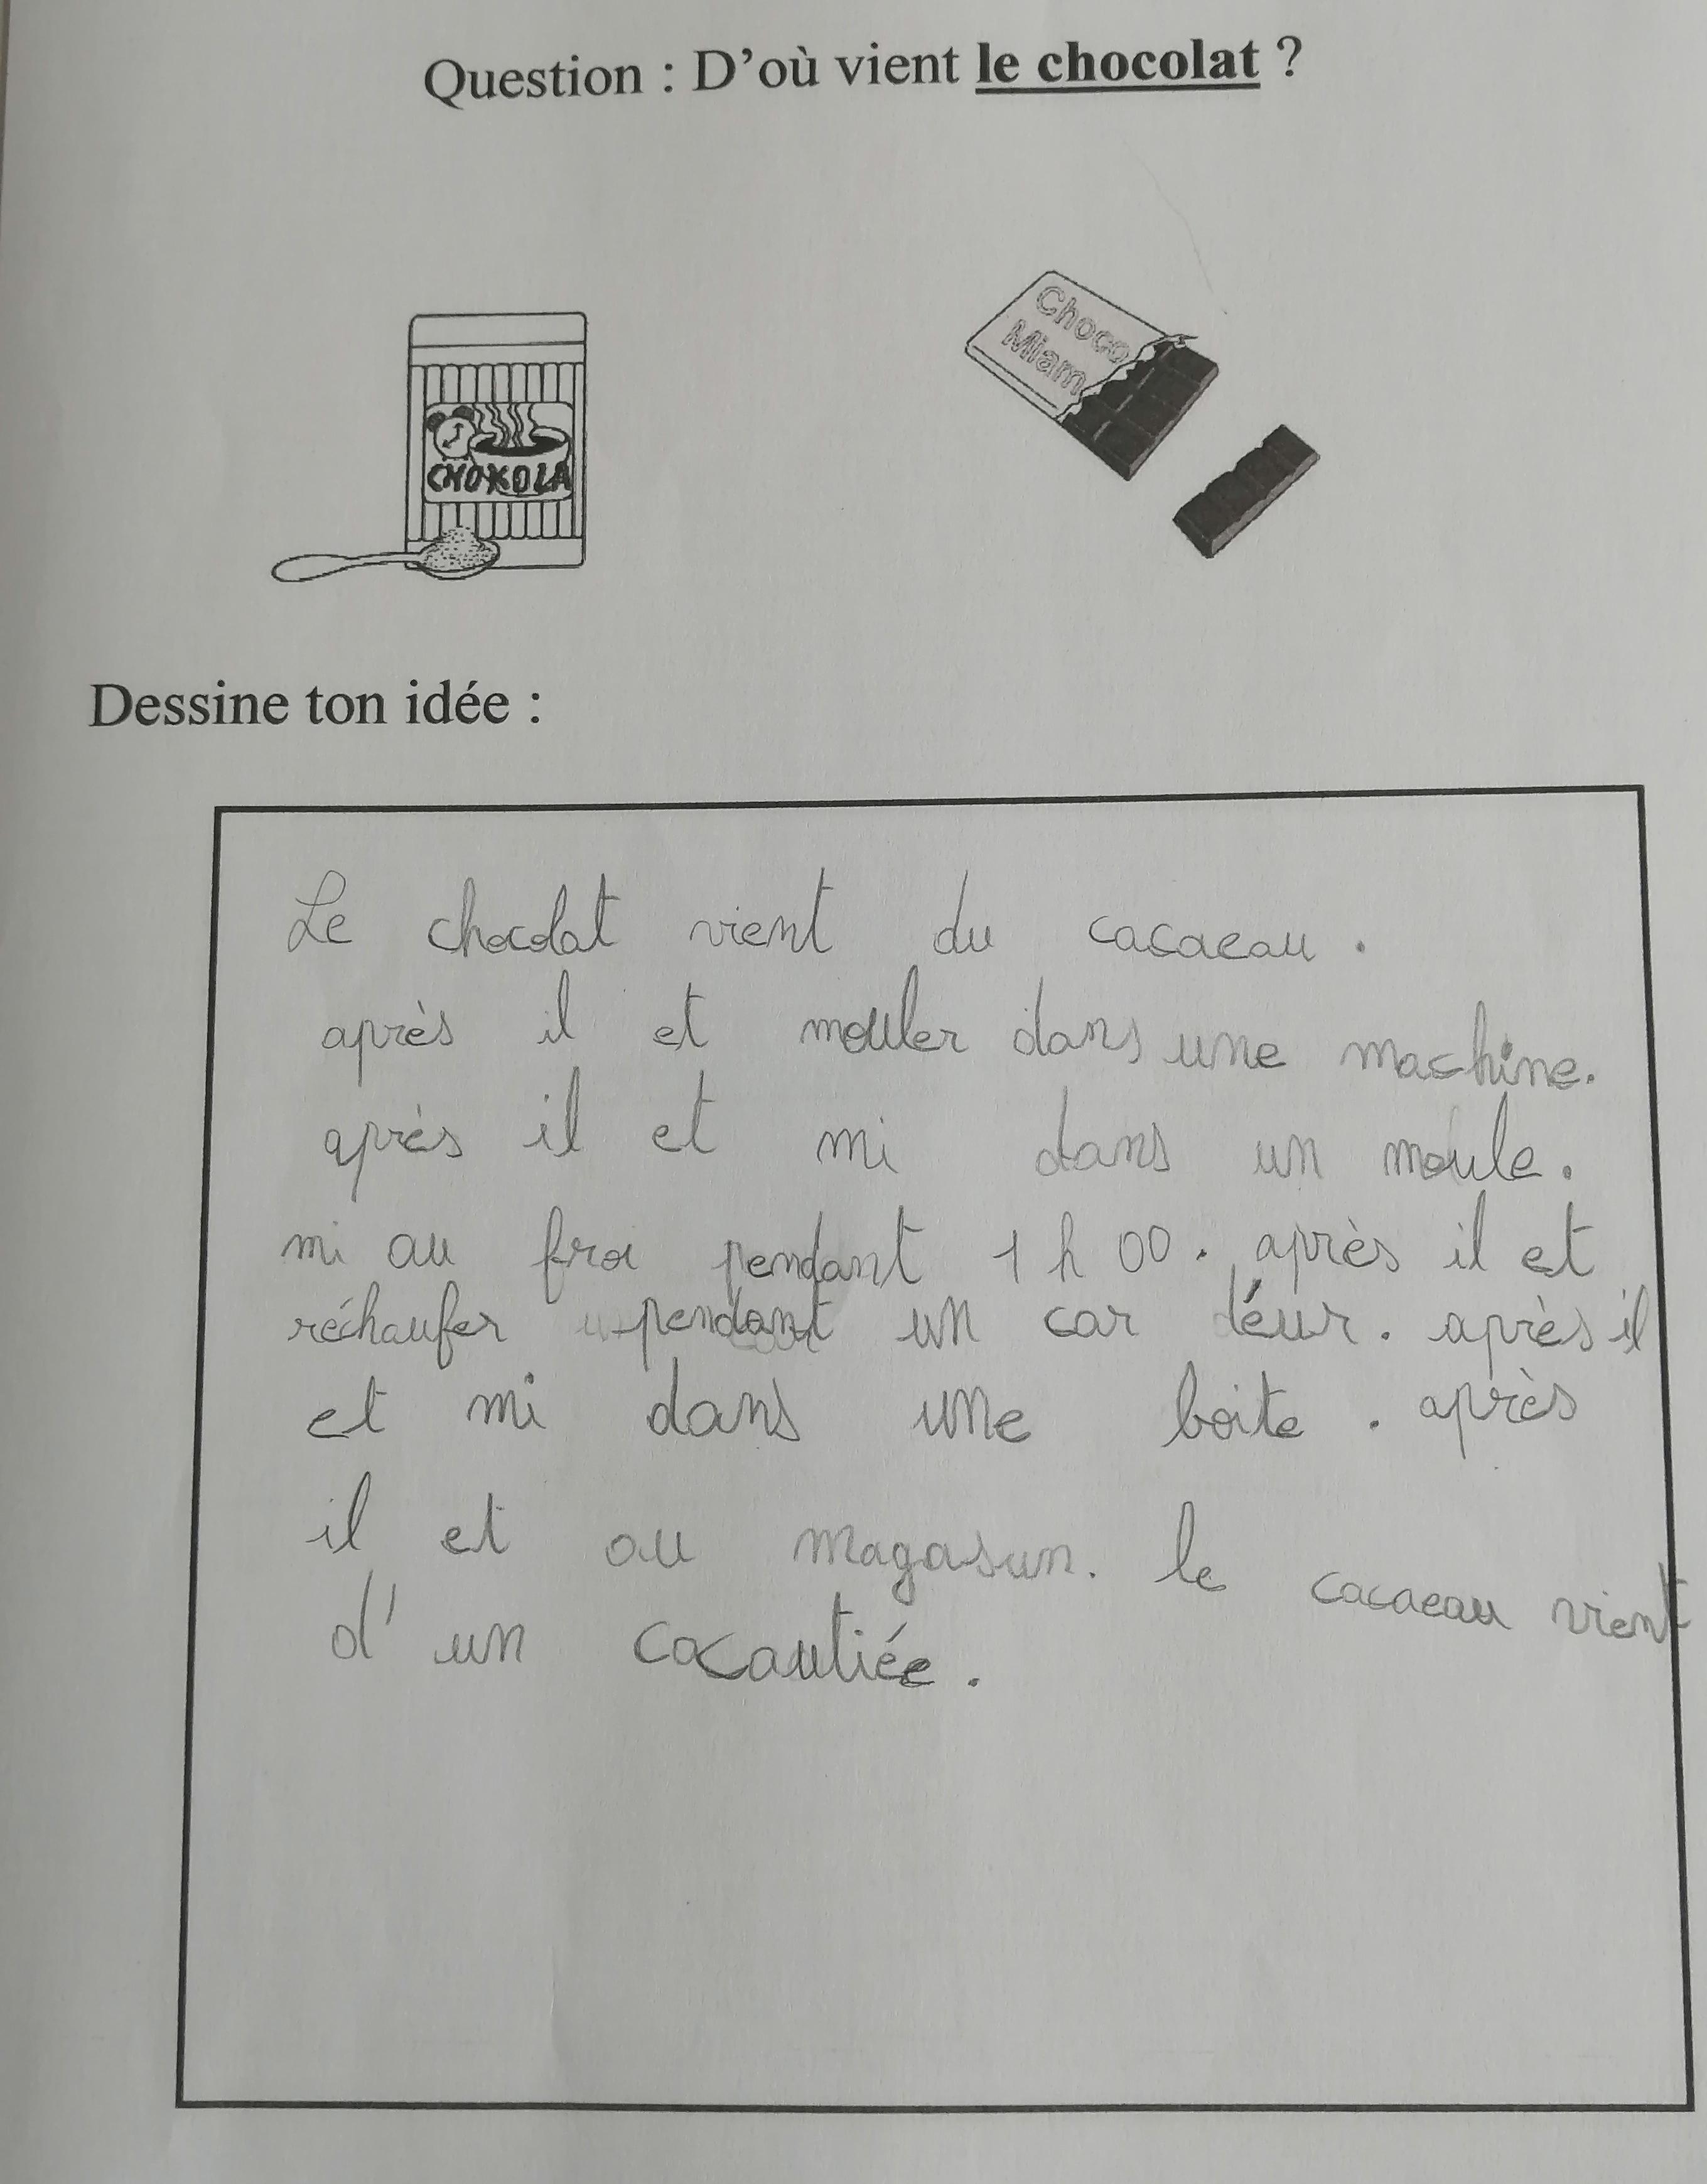 Question : D'où vient le chocolat ?
Choco
Miam
CHOKOLA
Dessine ton idée :
Le chocolat vient du cacaeau.
après il et mouler dans une machine.
après il et mi dans un moule.
mi au froi pendant 1 h 00. après il et
réchaufer pendant un car déur. après il
et mi dans une boite. après
il et au magasun. le cacaeau vient
d'un cacautiée.